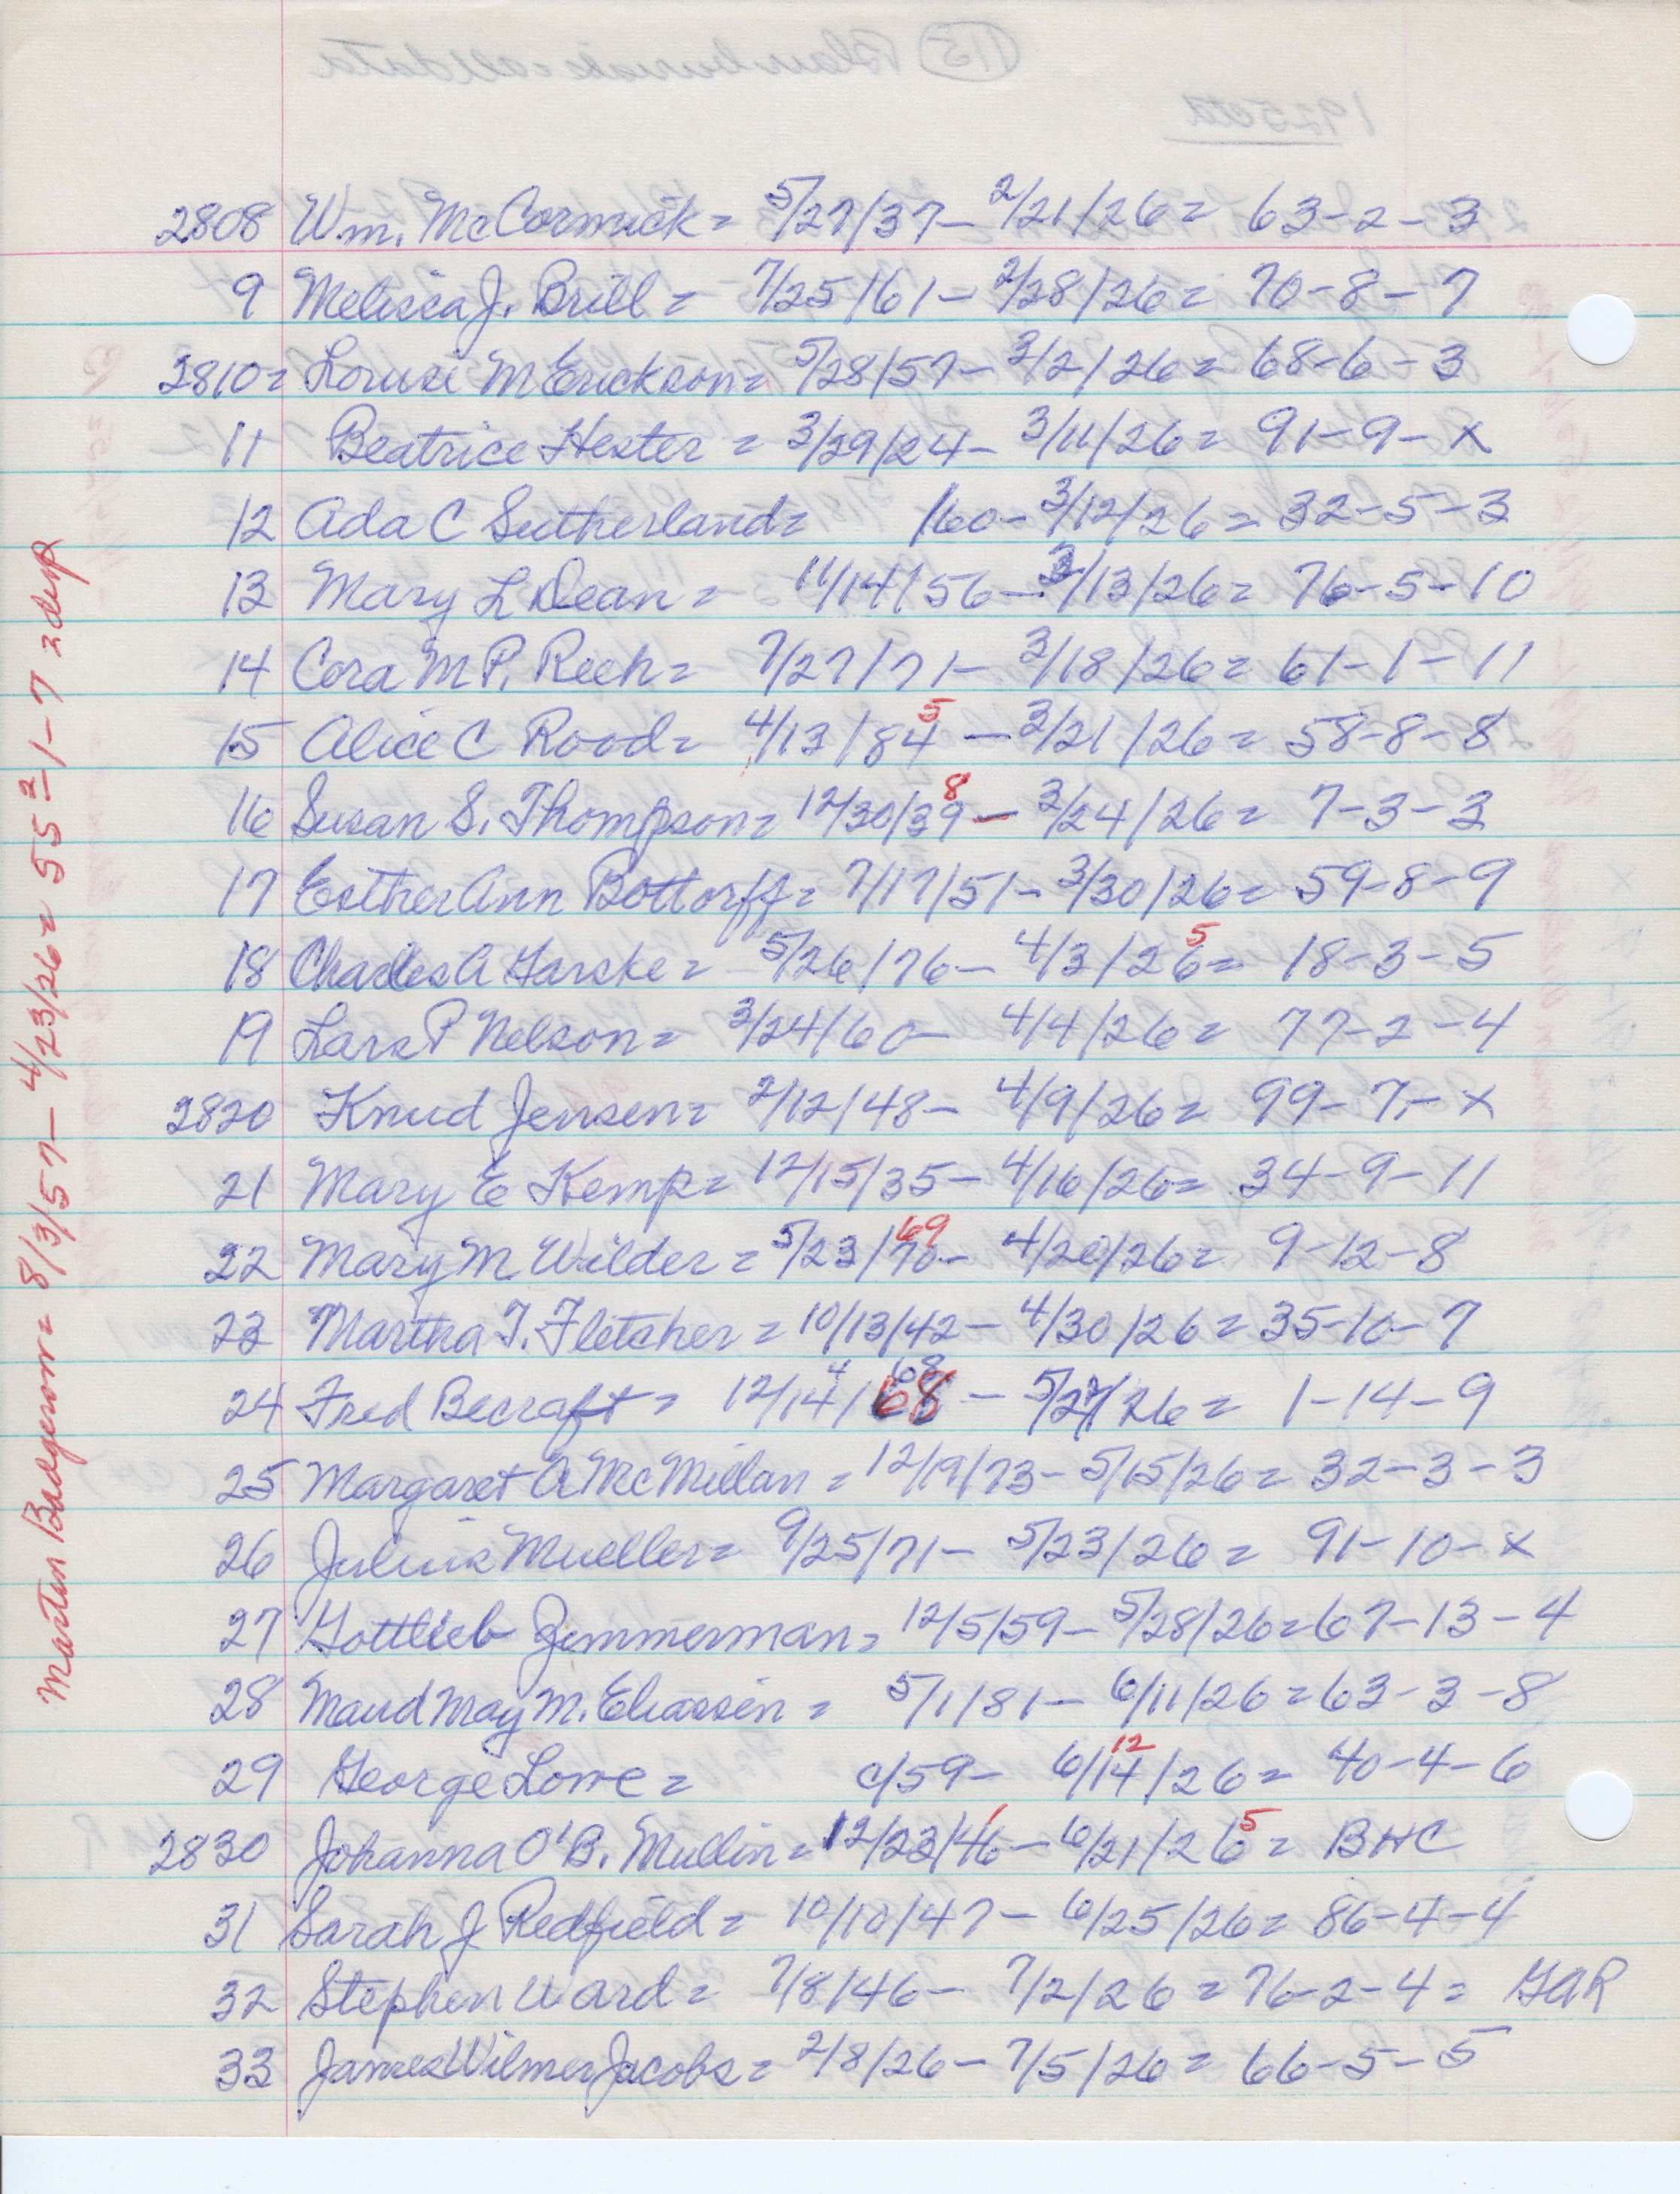 2808 Wm. McCormick = 5/27/37 - 2/21/26 = 63-2-3
9 Melissa J. Brill = 7/25/61 - 2/28/26 = 70-8-7
2810 = Louise M Erickson = 5/28/57 - 3/2/26 = 68-6-3
11 Beatrice Hester = 3/29/24 - 3/11/26 = 91-9-x
12 Ada C Sutherland = /60 - 3/12/26 = 32-5-3
13 Mary L Dean = 11/14/56 - 3/13/26 = 76-5-10
14 Cora M P. Reeh = 7/27/71 - 3/18/26 = 61-1-11
5
15 Alice C Rood = 4/13/84 - 3/21/26 = 58-8-8
8
16 Susan S. Thompson = 12/30/39 - 3/24/26 = 7-3-3
17 Esther Ann Bottorff = 7/17/51 - 3/30/26 = 59-8-9
5
18 Charles A Garske = 5/26/76 - 4/3/26 = 18-3-5
19 Lars P Nelson = 3/24/60 - 4/4/26 = 77-2-4
2820 Knud Jensen = 2/12/48 - 4/9/26 = 99-7-x
21 Mary E Kemp = 12/15/35 - 4/16/26 = 34-9-11
69
22 Mary M. Wilder = 5/23/70 - 4/20/26 = 9-12-8
23 Martha T. Fletcher = 10/13/42 - 4/30/26 = 35-10-7
4 68
24 Fred Becraft = 12/14/68 - 5/2/26 = 1-14-9
25 Margaret A McMillan = 12/19/73 - 5/15/26 = 32-3-3
26 Julius Mueller = 9/25/71 - 5/23/26 = 91-10-x
27 Gottlieb Zimmerman = 12/5/59 - 5/28/26 = 67-13-4
28 Maud May M. Eliassen = 5/1/81 - 6/11/26 = 63-3-8
12
29 George Lowe = c/59 - 6/14/26 = 40-4-6
1 5
2830 Johanna O'B. Mullin = 12/23/46 - 6/21/26 = BHC
31 Sarah J Redfield = 10/10/47 - 6/25/26 = 86-4-4
32 Stephen Ward = 7/8/46 - 7/2/26 = 76-2-4 = GAR
33 James Wilmer Jacobs = 2/8/26 - 7/5/26 = 66-5-5
Martin Badgerson = 8/3/57 - 4/23/26 = 55 2-1-7